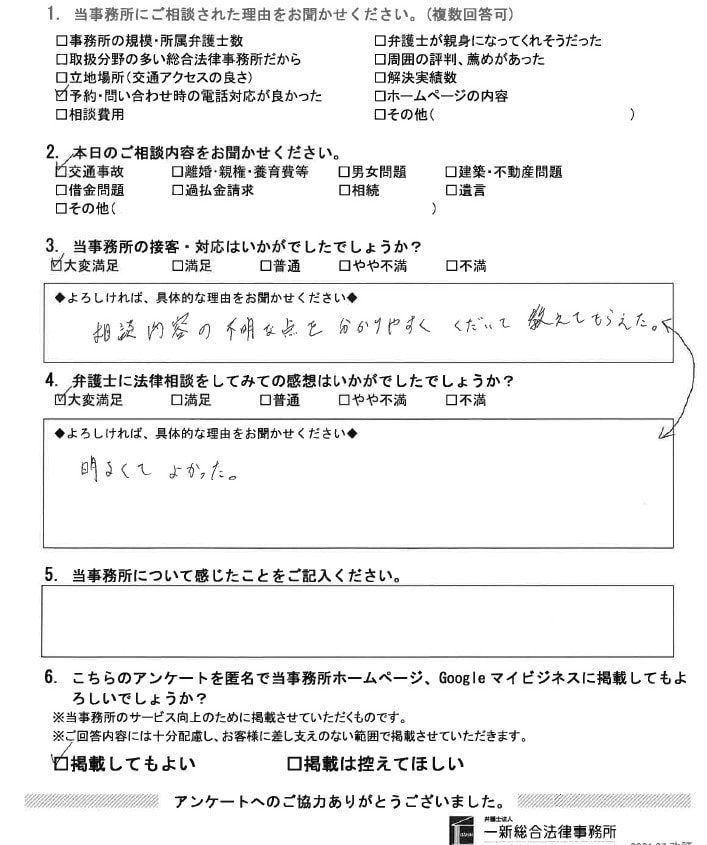 1. 当事務所にご相談された理由をお聞かせください。(複数回答可)
□事務所の規模・所属弁護士数 □弁護士が親身になってくれそうだった
□取扱分野の多い総合法律事務所だから □周囲の評判、薦めがあった
□立地場所(交通アクセスの良さ) □解決実績数
☑予約・問い合わせ時の電話対応が良かった □ホームページの内容
□相談費用 □その他( )
2. 本日のご相談内容をお聞かせください。
☑交通事故 □離婚・親権・養育費等 □男女問題 □建築・不動産問題
□借金問題 □過払金請求 □相続 □遺言
□その他( )
3. 当事務所の接客・対応はいかがでしたでしょうか?
☑大変満足 □満足 □普通 □やや不満 □不満
◆よろしければ、具体的な理由をお聞かせください◆
相談内容の不明な点を分かりやすくくだいて教えてもらえた。
4. 弁護士に法律相談をしてみての感想はいかがでしたでしょうか?
☑大変満足 □満足 □普通 □やや不満 □不満
◆よろしければ、具体的な理由をお聞かせください◆
明るくてよかった。
5. 当事務所について感じたことをご記入ください。
6. こちらのアンケートを匿名で当事務所ホームページ、Googleマイビジネスに掲載してもよ
ろしいでしょうか?
※当事務所のサービス向上のために掲載させていただくものです。
※ご回答内容には十分配慮し、お客様に差し支えのない範囲で掲載させていただきます。
☑掲載してもよい □掲載は控えてほしい
アンケートへのご協力ありがとうございました。
弁護士法人
一新総合法律事務所